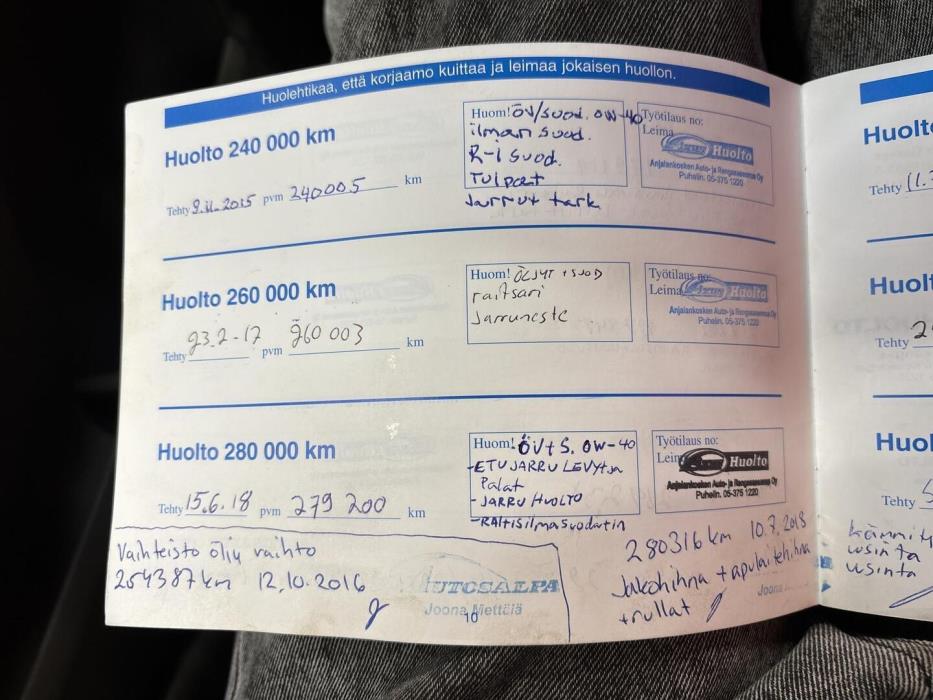 Huolehtikaa, että korjaamo kuittaa ja leimaa jokaisen huollon.
Huolto 240 000 km
Tehty 9.11.2015 pvm 240005 km
Huom! ÖV/suod. 0W-40
ilmansuod.
R-i suod.
Tulpat
Jarrut tark
Työtilaus no:
Leima
Huolto
Anjalankosken Auto- ja Rengasasennus Oy
Puhelin. 05-375 1220
Huolto 260 000 km
Tehty 23.2-17 pvm 260 003 km
Huom! ÖLJYT + SUOD
raitsari
Jarruneste
Työtilaus no:
Leima
Huolto
Anjalankosken Auto- ja Rengasasennus Oy
Puhelin. 05-375 1220
Huolto 280 000 km
Tehty 15.6.18 pvm 279 200 km
Huom! ÖV+S. 0W-40
-ETUJARRU LEVYT JA
Palat
- JARRU HUOLTO
-RAITISILMASUODATIN
Työtilaus no:
Huolto
Anjalankosken Auto- ja Rengasasennus Oy
Puhelin. 05-375 1220
Vaihteisto öljy vaihto
254387 km 12.10.2016
AUTOSALPA
Joona Mettälä
10
280316 km 10.7.2018
Jakohihna + apulaitehihna
+ rullat
Joona
Huolt
Tehty 11.
Huolt
Tehty 2
Huol
Tehty
uusinta
uusinta